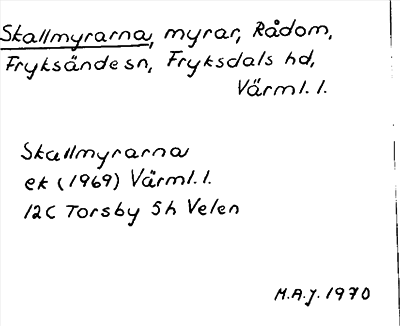 Skallmyrarna, myrar, Rådom,
Fryksände sn, Fryksdals hd,
Värml. l.
Skallmyrarna
ek (1969) Värml. l.
12C Torsby 5h Velen
M.A.J. 1970